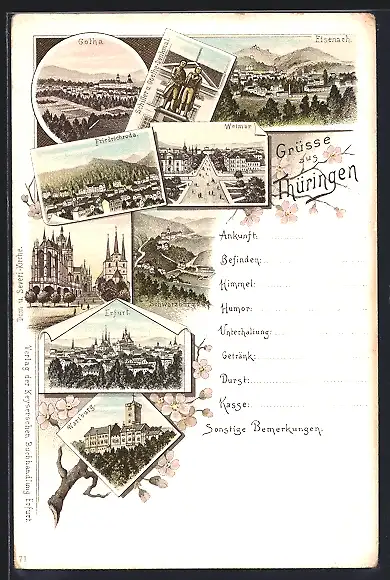 Gotha
Eisenach.
Friedrichroda.
Weimar
Grüsse
aus
Thüringen
Schwarzburg
Dom u. Severi-Kirche.
Erfurt.
Wartburg.
Ankunft:
Befinden:
Himmel:
Humor:
Unterhaltung:
Getränk:
Durst:
Kasse:
Sonstige Bemerkungen.
Verlag der Keyserschen Buchhandlung Erfurt.
71